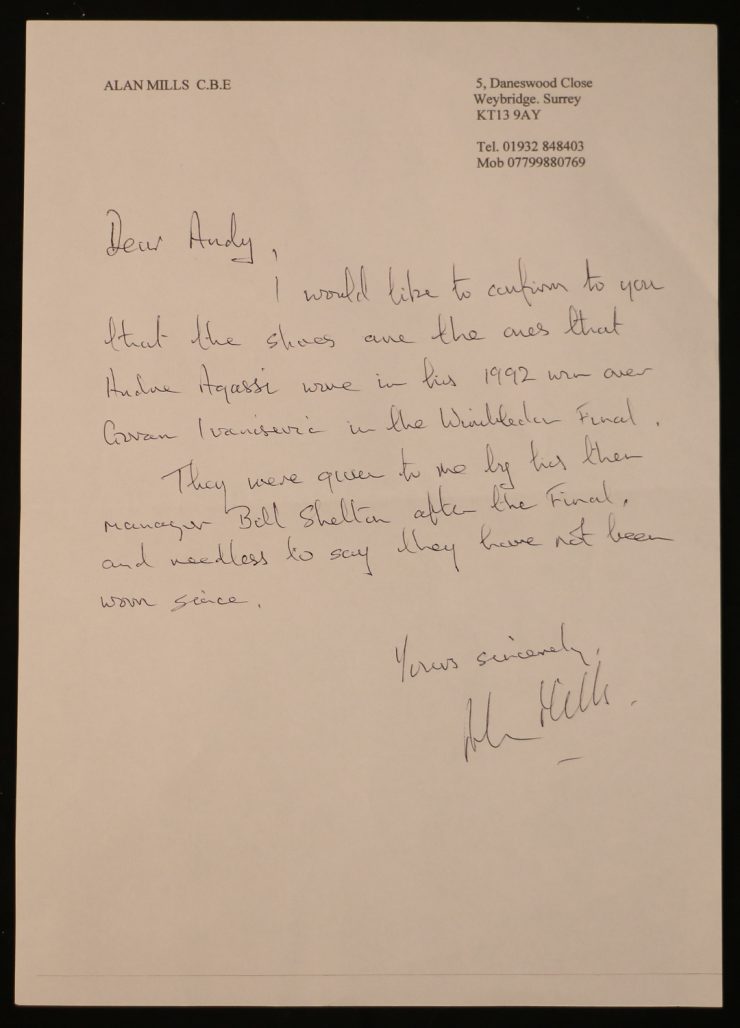 ALAN MILLS C.B.E
5, Daneswood Close
Weybridge. Surrey
KT13 9AY
Tel. 01932 848403
Mob 07799880769
Dear Andy,
I would like to confirm to you
that the shoes are the ones that
Andre Agassi wore in his 1992 win over
Goran Ivanisevic in the Wimbledon Final.
They were given to me by his then
manager Bill Shelton after the Final,
and needless to say they have not been
worn since.
Yours sincerely,
Alan Mills.